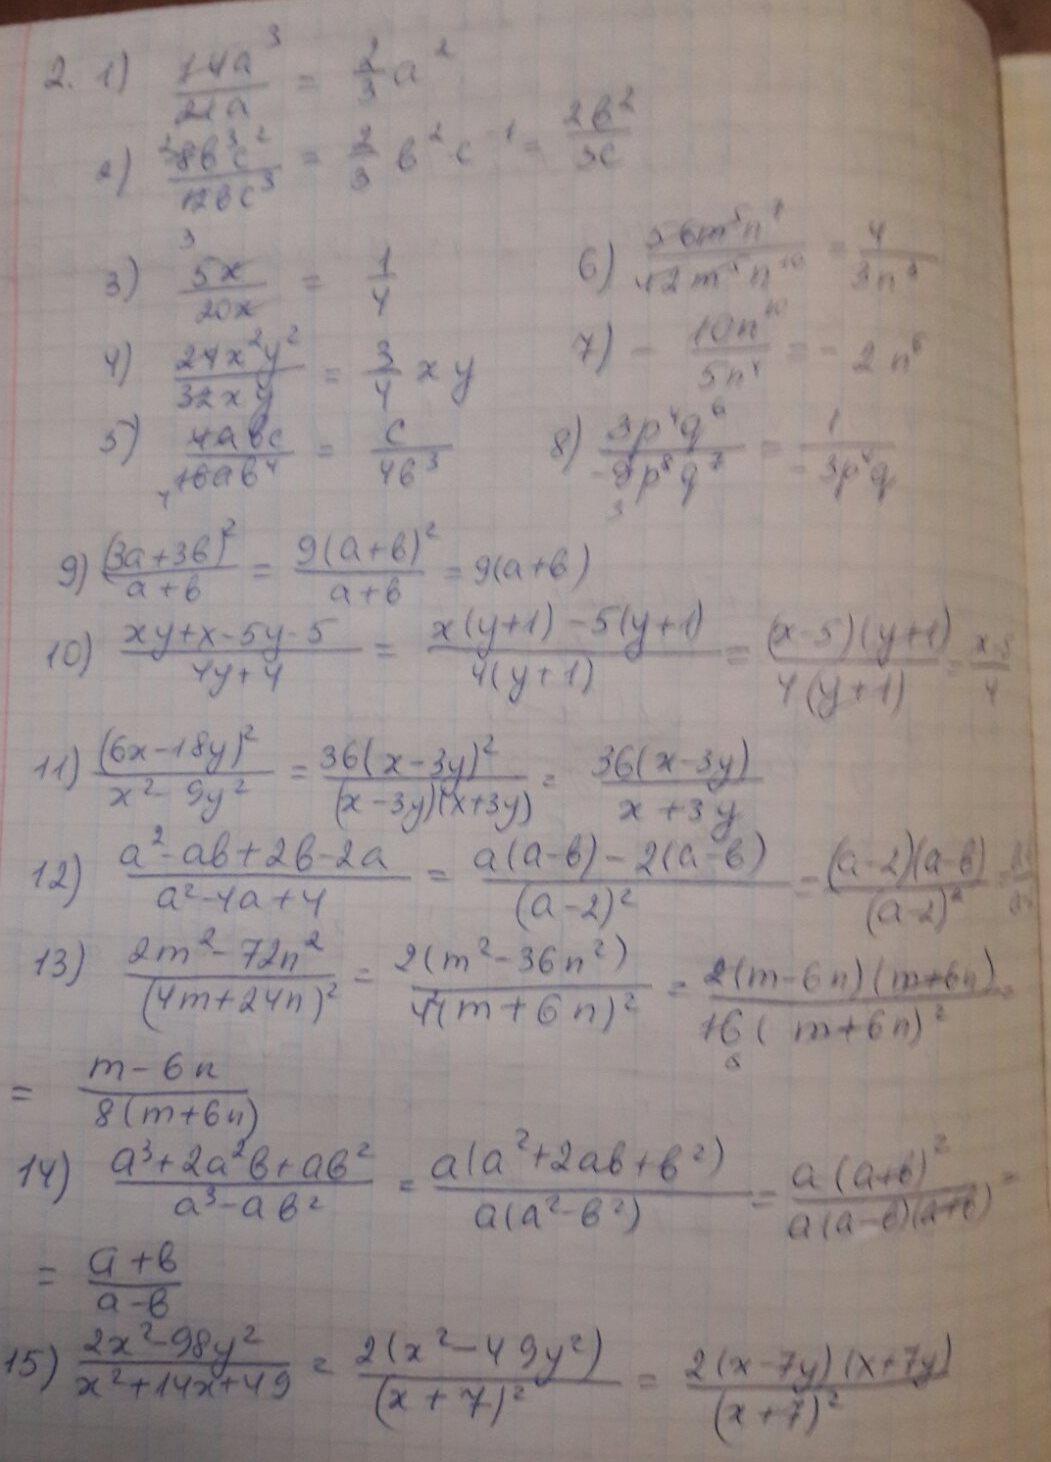 2. 1) 14a³/21a = 2/3 a²
2) 8b³c²/12bc³ = 2/3 b²c⁻¹ = 2b²/3c
3) 5x/20x = 1/4
4) 24x²y²/32xy = 3/4 xy
5) 4abc/16ab⁴ = c/4b³
6) 56m⁵n⁷/42m⁵n¹⁰ = 4/3n³
7) - 10n¹⁰/5n⁴ = - 2n⁶
8) 3p⁴q⁶/-9p⁸q⁷ = 1/-3p⁴q
9) (3a+3b)²/a+b = 9(a+b)²/a+b = 9(a+b)
10) xy+x-5y-5/4y+4 = x(y+1)-5(y+1)/4(y+1) = (x-5)(y+1)/4(y+1) = x-5/4
11) (6x-18y)²/x²-9y² = 36(x-3y)²/(x-3y)(x+3y) = 36(x-3y)/x+3y
12) a²-ab+2b-2a/a²-4a+4 = a(a-b)-2(a-b)/(a-2)² = (a-2)(a-b)/(a-2)² =
13) 2m²-72n²/(4m+24n)² = 2(m²-36n²)/4²(m+6n)² = 2(m-6n)(m+6n)/16(m+6n)² =
= m-6n/8(m+6n)
14) a³+2a²b+ab²/a³-ab² = a(a²+2ab+b²)/a(a²-b²) = a(a+b)²/a(a-b)(a+b) =
= a+b/a-b
15) 2x²-98y²/x²+14x+49 = 2(x²-49y²)/(x+7)² = 2(x-7y)(x+7y)/(x+7)²